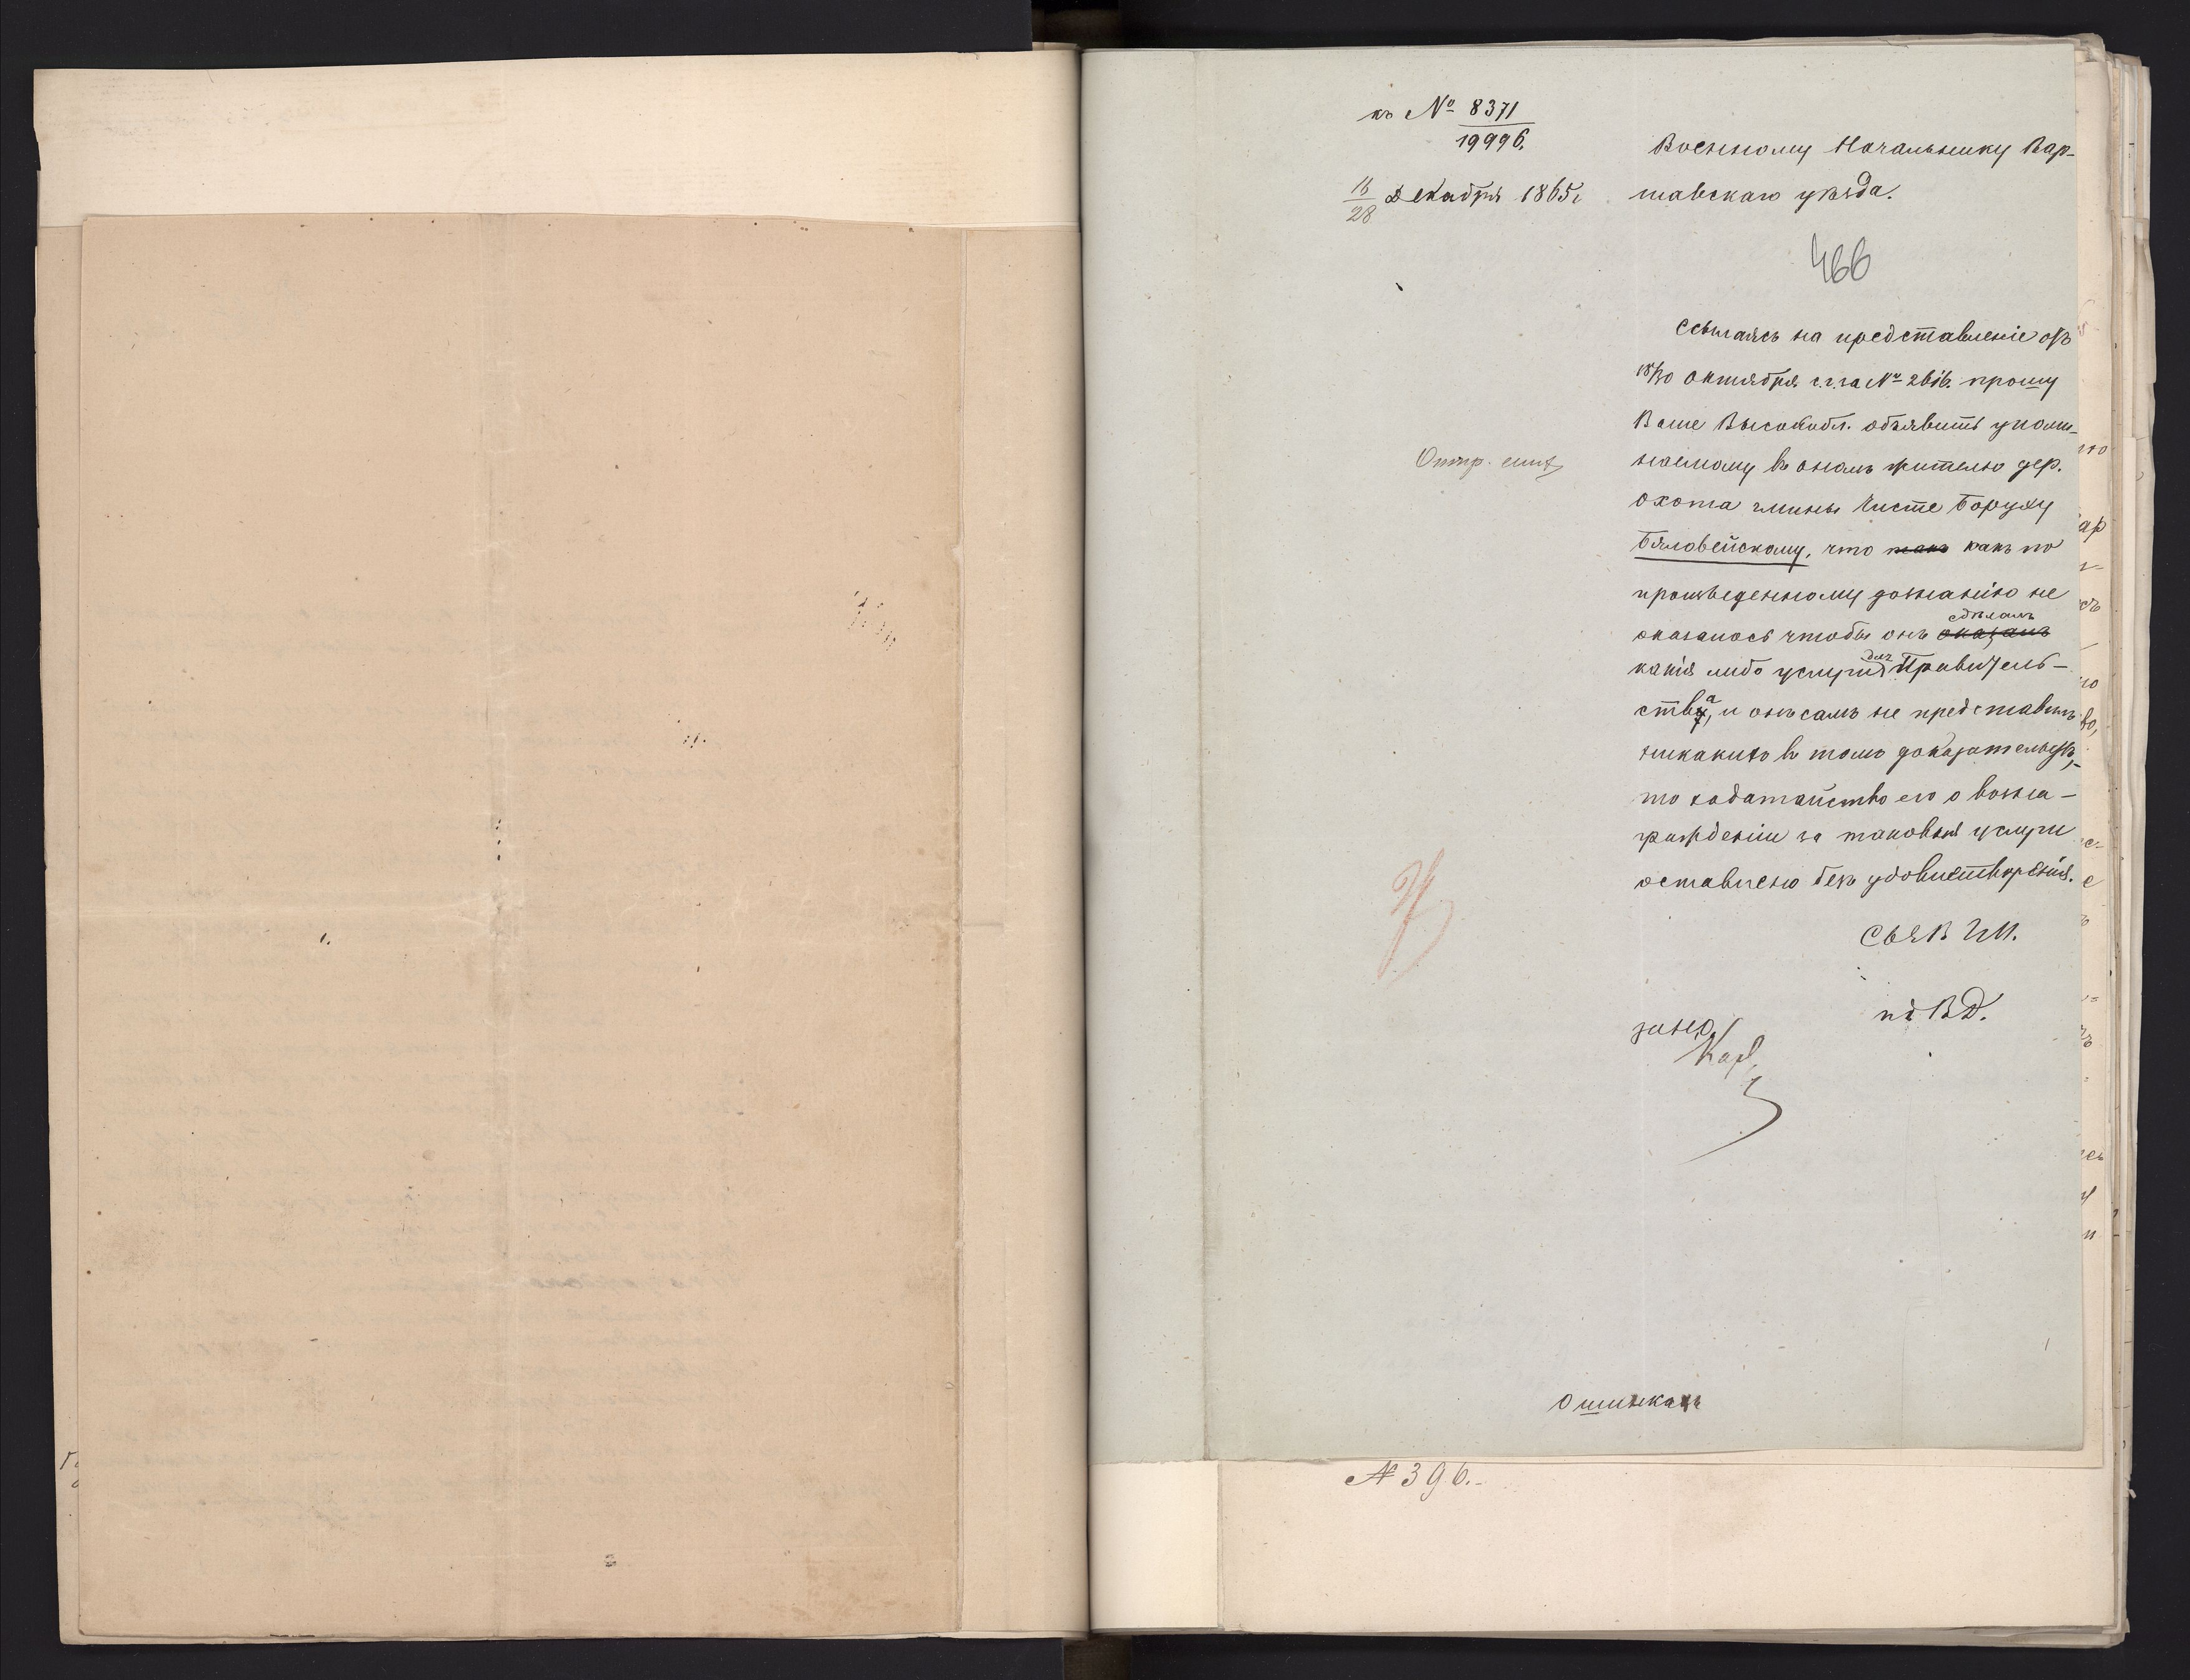 къ № 8371
19996.
16/28 Декабря 1865 г
Военному Начальнику Вар-
шавскаго уѣзда.
466
Ссылаясь на представленіе отъ
18/30 Октября с.г. за № 2616. прошу
Ваше Высокобл. объявить упоми-
наемому въ ономъ жителю дер.
Охота гмины Чисте Боруху
Бяловейскому, что какъ по
произведенному дознанію не
оказалось чтобы онъ сдѣлалъ
какія либо услуги для Правитель-
ства, и онъ самъ не представилъ
никакихъ въ томъ доказательствъ,-
то ходатайство его о возна-
гражденіи за таковыя услуги
оставлено безъ удовлетворенія.
Отпр.
СЬЯВ
ВД.
№ 396.-